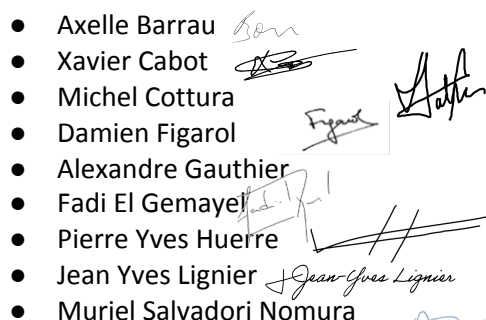 ● Axelle Barrau
● Xavier Cabot
● Michel Cottura
● Damien Figarol Figarol
● Alexandre Gauthier
● Fadi El Gemayel
● Pierre Yves Huerre
● Jean Yves Lignier Jean-Yves Lignier
● Muriel Salvadori Nomura